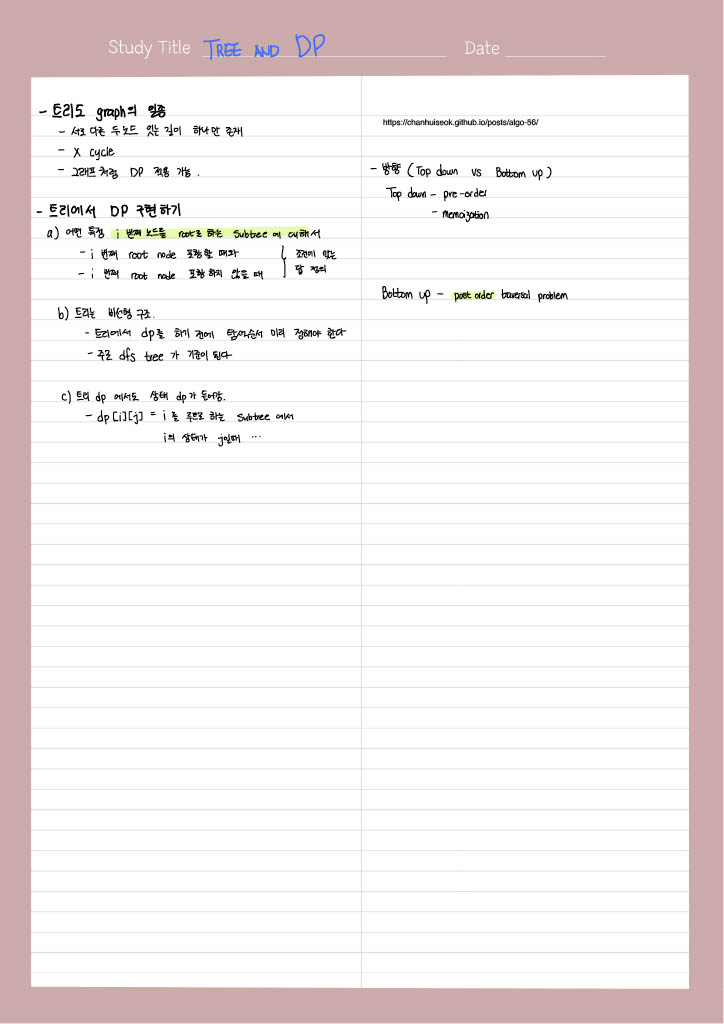 Study Title TREE AND DP Date
- 트리도 graph의 일종
- 서로 다른 두 노드 잇는 길이 하나만 존재
- X cycle
- 그래프처럼 DP 적용 가능.
- 트리에서 DP 구현하기
a) 어떤 특정 i 번째 노드를 root로 하는 Subtree에 대해서
- i 번째 root node 포함할 때와
- i 번째 root node 포함하지 않을 때
조건에 맞는
답 정의
b) 트리는 비선형 구조.
- 트리에서 dp를 하기 전에 탐색순서 미리 정해야 한다
- 주로 dfs tree 가 기준이 된다
c) 트리 dp 에서도 상태 dp가 들어감.
- dp[i][j] = i 를 루트로 하는 Subtree 에서
i의 상태가 j일때 ...
https://chanhuiseok.github.io/posts/algo-56/
- 방향 (Top down vs Bottom up)
Top down - pre-order
- memoization
Bottom up - post order traversal problem